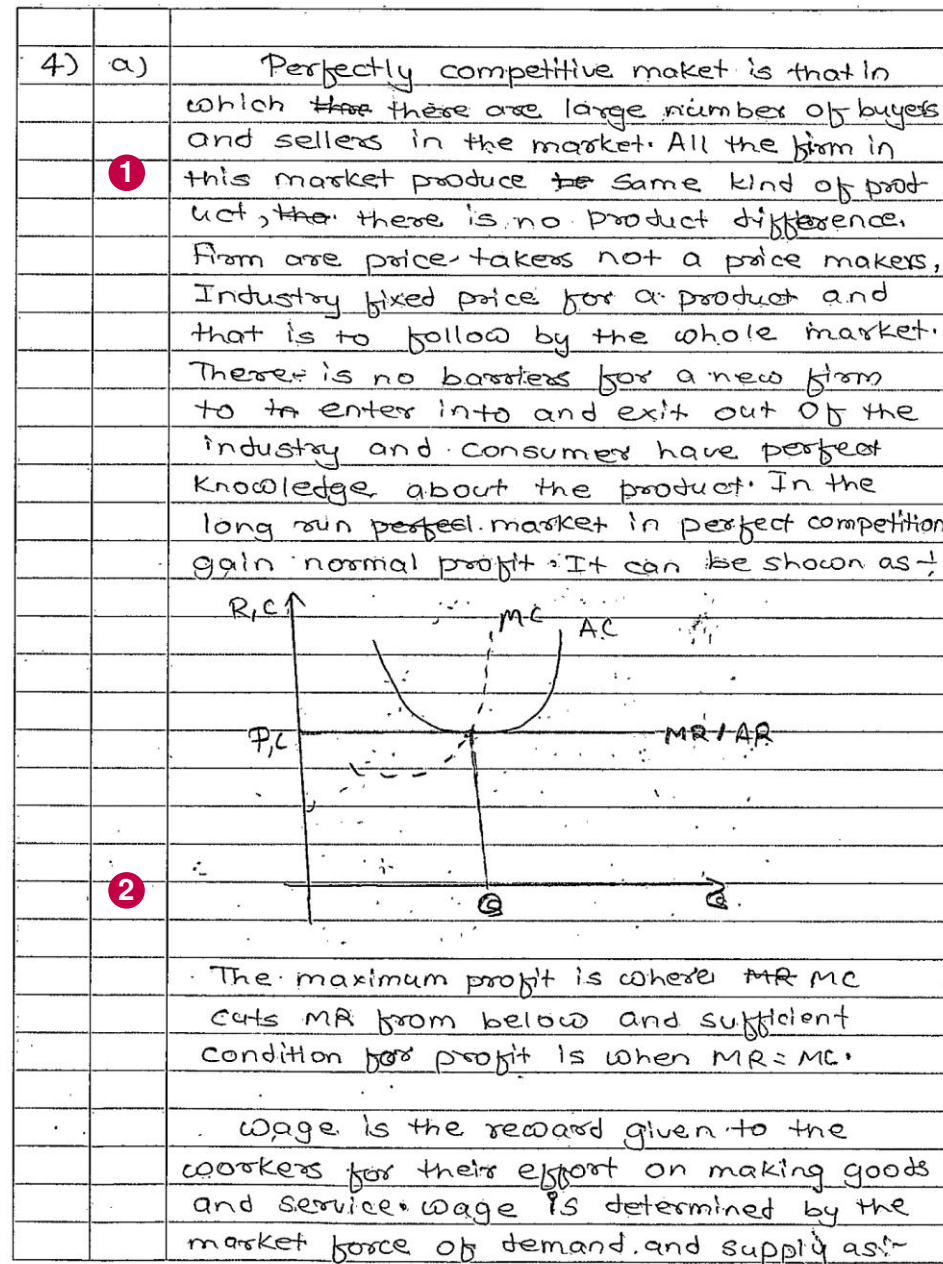 4) a) Perfectly competitive maket is that in
which thre there are large number of buyers
and sellers in the market. All the firm in
1
this market produce te same kind of prod-
uct, the there is no product difference.
Firm are price takers not a price makers,
Industry fixed price for a product and
that is to follow by the whole market.
There is no barriers for a new firm
to in enter into and exit out of the
industry and consumer have perfect
knowledge about the product. In the
long run perfect market in perfect competition
gain normal profit. It can be shown as -:
R,C
MC AC
P,C MR/AR
2
Q Q
The maximum profit is where MR MC
cuts MR from below and sufficient
condition for profit is when MR = MC.
wage is the reward given to the
woorkers for their effort on making goods
and service. wage is determined by the
market force of demand and supply as:-